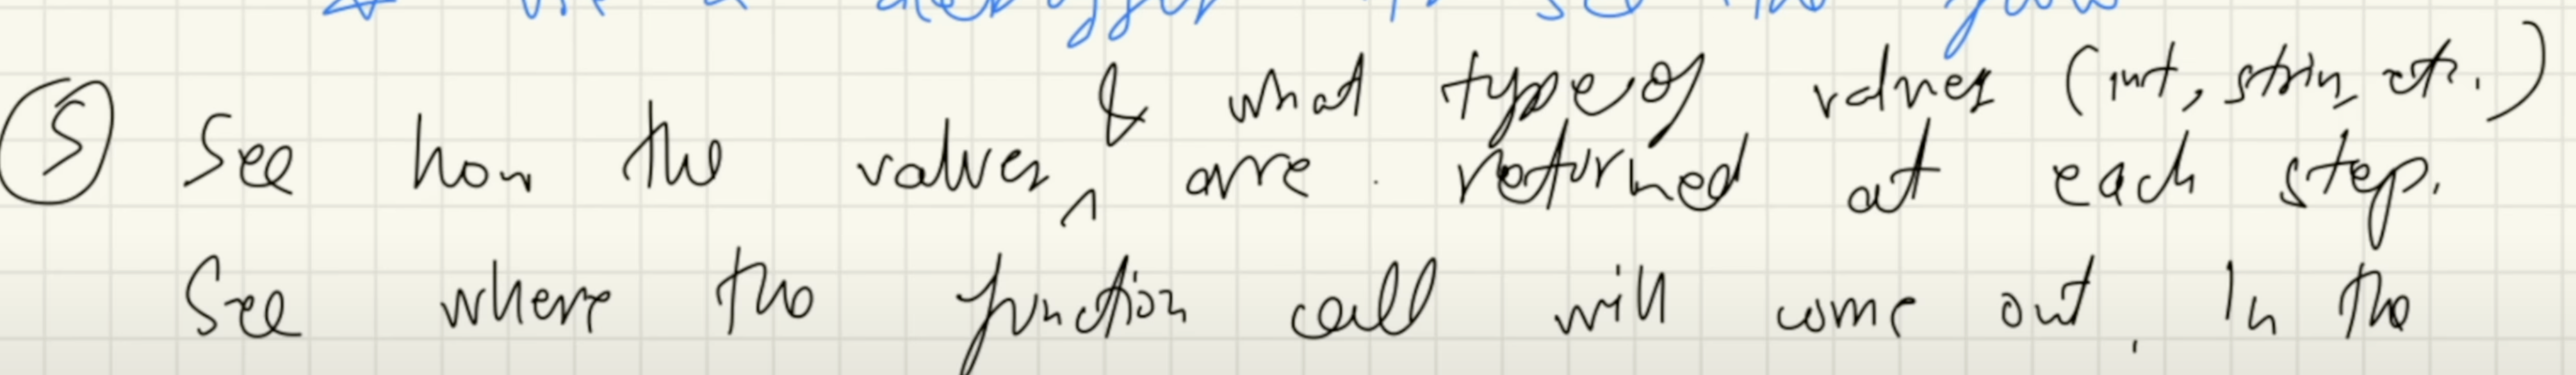 use a debugger
⑤ See how the values ‸ & what type of values (int, strin, etc.) are returned at each step.
See where the function call will come out. In the